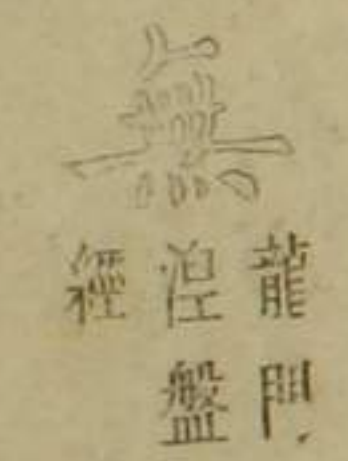 無
龍門
涅盤
經